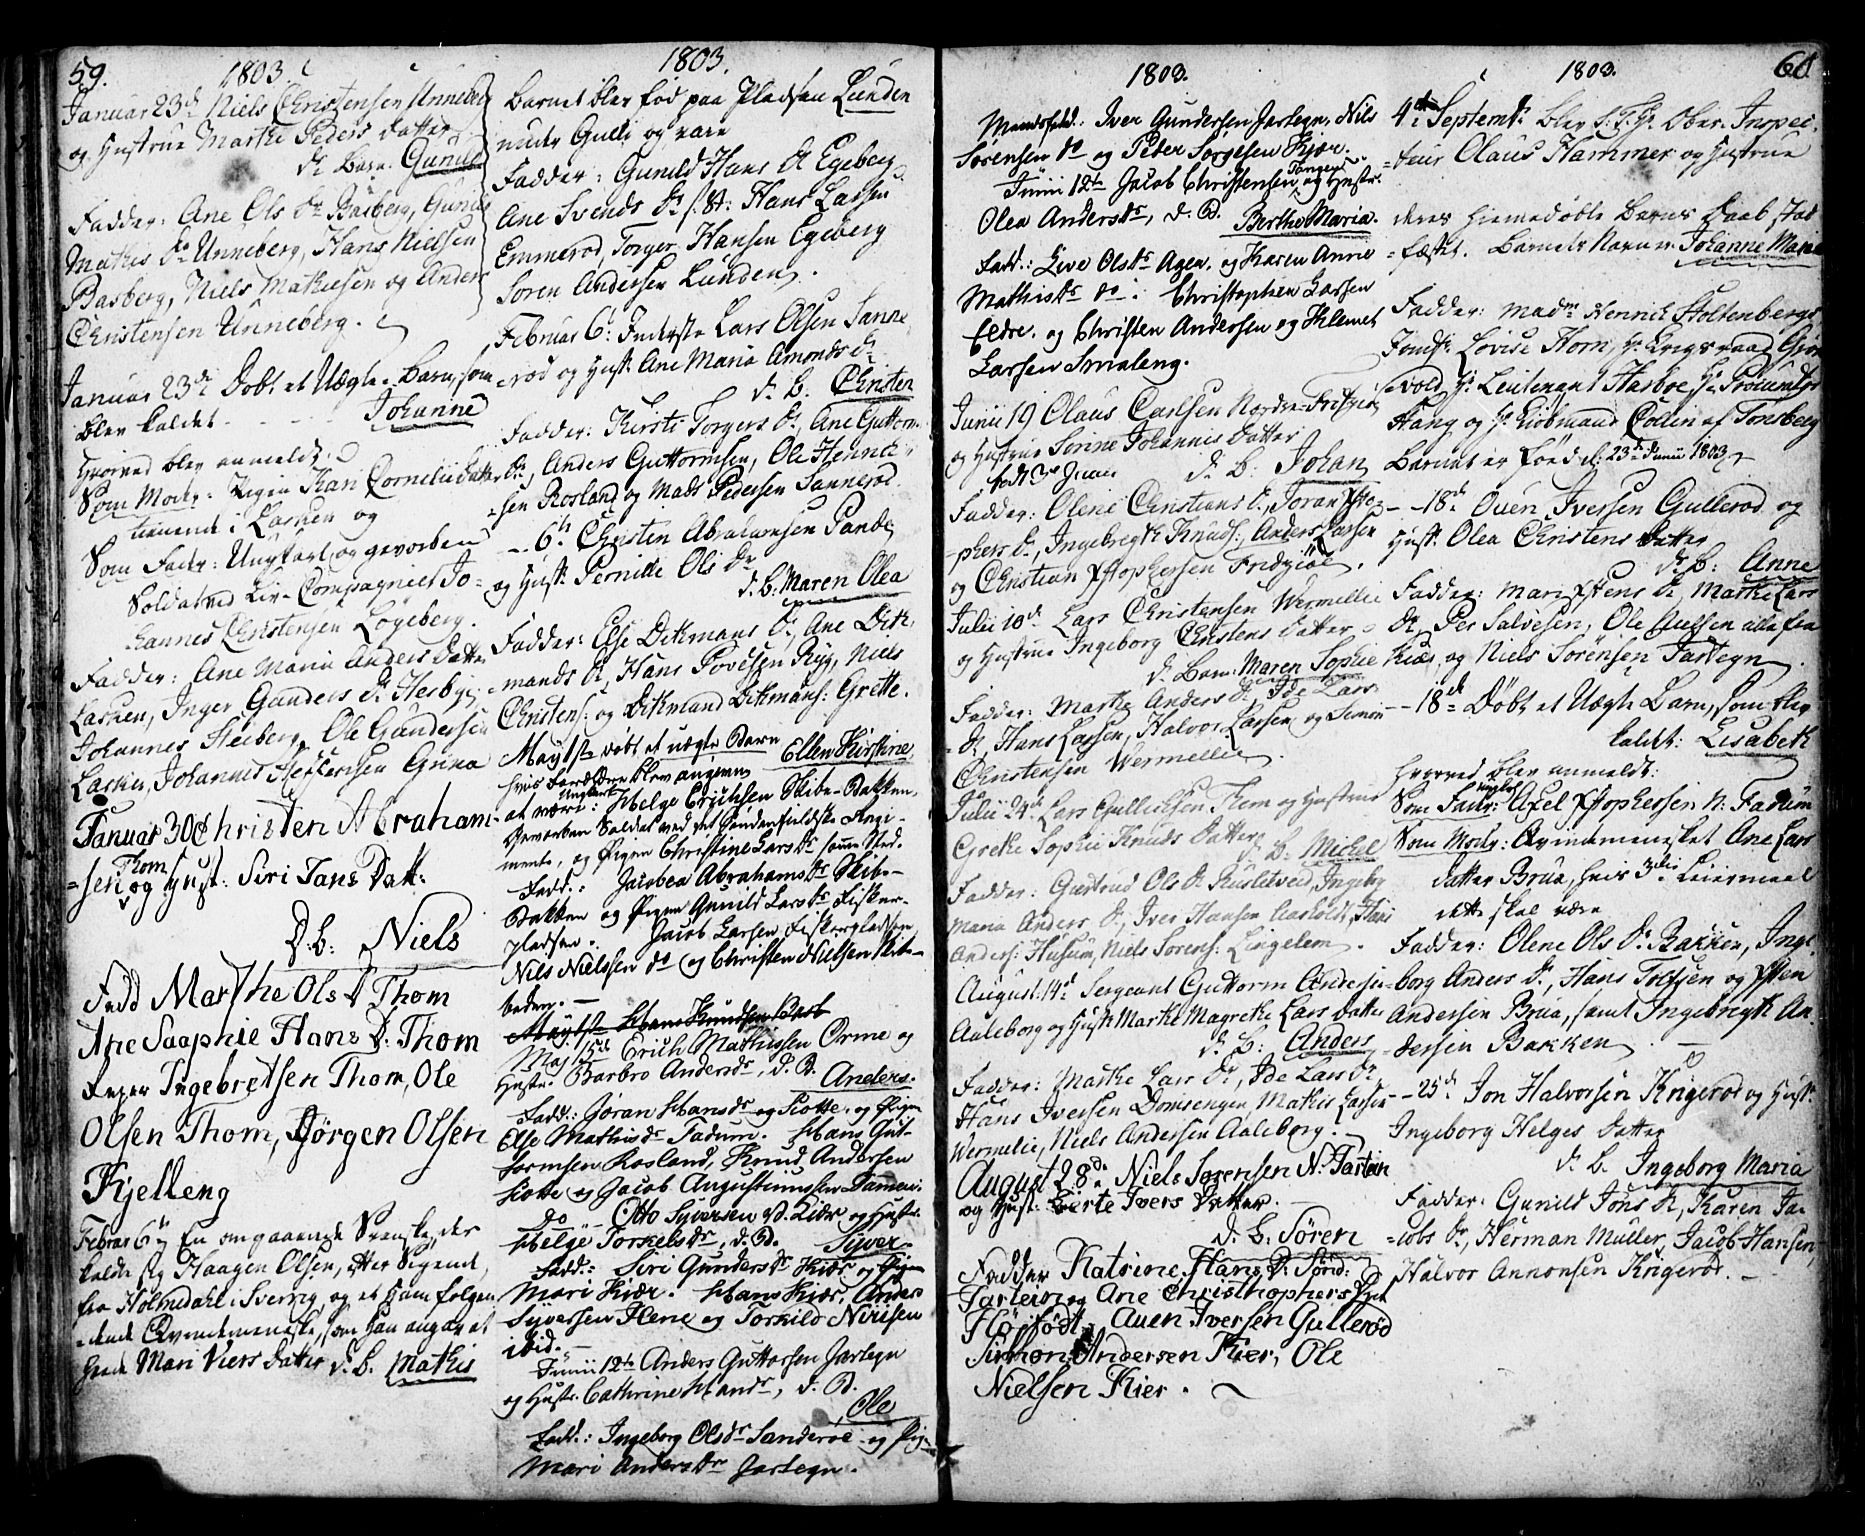 59.
1803.
Januar 23d Niels Christensen Unneberg
og Hustrue Marthe Peders datter
d: Barn: Gunild
Fadder: Ane Ols Dr Basberg, Gunild
Mathis Dr Unneberg, Hans Nielsen
Basberg, Niels Mathiesen og Anders
Christensen Unneberg.
Januar 23de Døbt et Uægte Barn, som
blev kaldet Johanne
Hvorved blev anmeldt:
Som Moder: Pigen Kari Cornelii datter
tienende i Lasken og
Som Fader: Ungkarl og gevorben
Soldat ved Liv-Compagniet Jo-
hannes Christensen Løgeberg.
Fadder: Ane Maria Anders Datter
Lasken, Inger Gunders Dr
Johannes Ole Gundersen
Lasken, Johannes Steffensen
Januar 30 Christen Abraham-
-sen Thom og Hust: Siri Jans Datt:
D: b: Niels
Fadd Marthe Ols D Thom
Ane Saaphie Hans D: Thom
Ingebretsen Thom, Ole
Olsen Thom, Jørgen Olsen
Kjelleng
Febvar 6te En omgaaende Svenske, der
kaldte sig Haagen Olsen, efter Sigende,
fra Holmedahl i Sverrig, og et ham følgen
-dende Qvindemenneske, som han angav at
hede Mari Niers datter d. b. Mathis
1803.
Barnet blev fød paa Pladsen Lunden
under Gulli og vare
Fadder: Gunild Hans Dr Egeberg
Ane Svends Dr s. St: Hans Larsen
Emmerød, Torger Hansen Egeberg
Søren Andersen Lunden.
Februar 6: Inderste Lars Olsen Sanne
-rød og Hust: Ane Maria Amonds Dr
d. b. Christen
Fadder: Kirsti Torgers Dr, Ane Guttorms
Dr, Anders Guttormsen, Ole Henrik-
-sen Rosland og Mads Pedersen Sannerød.
-- 6te Christen Abrahamsen Pande
og Hust: Pernille Ols Dr
d. b: Maren Olea
Fadder: Else Ditkmans Dr, Ane Ditk-
mands Dr, Hans Povelsen Ryg, Niels
Christens: og Ditkmand Ditkmans: Grette.
May 1ste døbt et uægte Barn Ellen Kirstine
hvis Forældre blev angivne
at være: Ungkarl Helge Erichsen Skibe-Bakken
Gevorben Soldat ved det Søndenfieldske Regi-
mente, og Pigen Christine Lars Dr samme Sted.
Fadd.: Jacobea Abrahams Dr Skibe-
Bakken og Pigen Gunild Lars Dr Fisker-
pladsen. Jacob Larsen Fiskerpladsen,
Nils Nielssen do og Christen Nielsen Skibe-
beden.
May 1ste Hans Knudsen
May 15de Erich Mathissen Orme og
Hustr. Barbro Andersdr, d. B. Anders.
Fadd.: Jøran Hansdr og Siotte, og Pigen
Else Mathisdr Fadum. Hans Gut-
tormsen Rosland, Knud Andersen
Siotte og Jacob Augustinussen
Do Otto Syversen Kiær og Hustr:
Helge Torkelsdr, d. B. Syver.
Fadd.: Siri Gundersdr Kiær og Pigen
Mari Kiær. Hans Kiær, Anders
Syversen Hene og Torkild
ibid.
Junii 12te Anders Guttorsen Jarlegn
og Hustr: Cathrine Hansdr, d. B.
Ole
Fadd.: Ingeborg Olsdr Sanderøe og Pig:
Mari Andersdr Jarlegn.
1803.
Mandsfold. Iver Gundersen Jarlegn, Nils
Sørensen do og Peder Sørgesen Kjær.
Junii 12te Jacob Christensen Tangen og Hustr.
Olea Andersdr, d. B. Berthe Maria.
Fadd.: Live Olsdr Agen. og Karen Anne
Mathisdr do. Christopher Larsen
Eldre. og Christen Andersen og Klemet
Larsen Smaleng.
Junii 19 Olaus Carlsen Nordre-
og Hustrue Sonne Johannis datter
født 3de Junii d: b: Johan
Fadder: Oleni Christians Dr, Joran Xsto-
-phers Dr, Ingebregth Knuds: Anders Larsen
og Christian Xstophersen Fridgiøl.
Julii 10de Lars Christensen Wermellie
og Hustrue Ingeborg Christens datter
d. Barn: Maren Sophie
Fadder: Marthe Anders Dr, Ide Lars
Dr, Hans Larsen, Halvor Larsen og Simon
Christensen Wermellie.
Julii 24de Lars Gullichsen Thom og Hustrue
Grethe Sophie Knuds datter
d. b. Michel
Fadder: Gurtrud Ols Dr Ingeb
Maria Anders Dr, Iver Hansen Aasholdt, Hans
Anders: Husum, Niels Sørens: Lingelem.
August 14de Sergeant Guttorm Andersen
Aaleborg og Hust: Marthe Magrethe Lars datter
d. b: Anders
Fadder: Marthe Lars Dr, Ide Lars Dr
Hans Iversen Domsengen, Mathis Larsen
Wermelie, Niels Andersen Aaleborg.
August 28de Niels Sørensen N: Jarlein
og Hust: Berte Ivers Datter.
d. b: Søren
Fadder Katrine Hans D: Sørd:
Jarlein og Ane Christhophers D
Høijødt, Auen Iversen Gullerød
Simon Andersen Kier, Ole
Nielsen Kier.
1803.
60
4de Septembr blev S. T. Hr. Ober-Inspec-
-teur Olaus Hammer og Hustrue
deres Hjemedøbte Barns Daab stad
-fæstet. Barnets Navn er Johanne Marie
Fadder: Madm Henrich Stoltenbergs
Jomfr: Lovise Horn, Hr Krigsraad Grøn
-vold, Hr: Leutenant Hasboe, Hr Procurator
Stang og Hr: Kiøbmand Collen af Tønsberg
Barnet er fød d: 23de Junii 1803.
-- 18de Ouen Iversen Gullerød og
Hust: Olea Christens datter
d. b: Anne
Fadder: Mari Xstens Dr, Marthe Lars
Dr, Per Salvesen, Ole Nielsen alle fra
Kiær, og Niels Sørensen Jarlegn.
-- 18de Døbt et Uægte Barn, som blev
kaldet: Lisabeth
hvorved blev anmeldt:
Som Fader: Axel Xstophersen N. Fadum
Som Moder: Qvindemennesket Ane Lars
datter Brua, hvis 3die Leiermaal
dette skal være
Fadder: Olene Ols Dr Bakken, Inge-
-borg Anders Dr, Hans Tolfsen og Xsten
Andersen Brua, samt Ingebregth An-
dersen Bakken
-- 25de Jon Halvorsen Krigerød og Hust:
Ingeborg Helges datter
d. b. Ingeborg Maria
Fadder: Gunild Jons Dr, Karen Ja-
-cobs Dr, Herman Müller, Jacob Hansen,
Halvor Annonsen Krigerød.